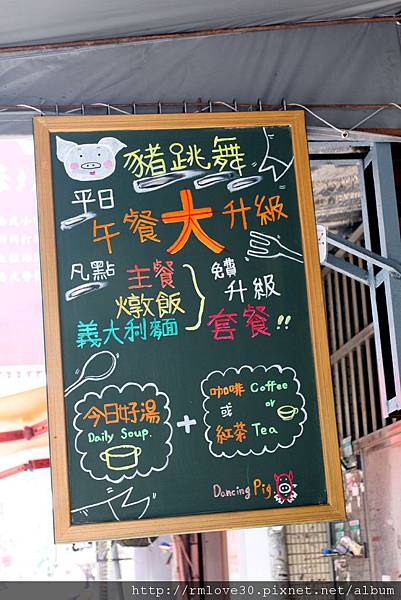 豬跳舞
平日
午餐大升級
凡點
主餐
燉飯
義大利麵
免費
升級
套餐!!
今日好湯
Daily Soup.
+
咖啡 Coffee
或 or
紅茶 Tea
Dancing Pig
http://rmlove30.pixnet.net/album